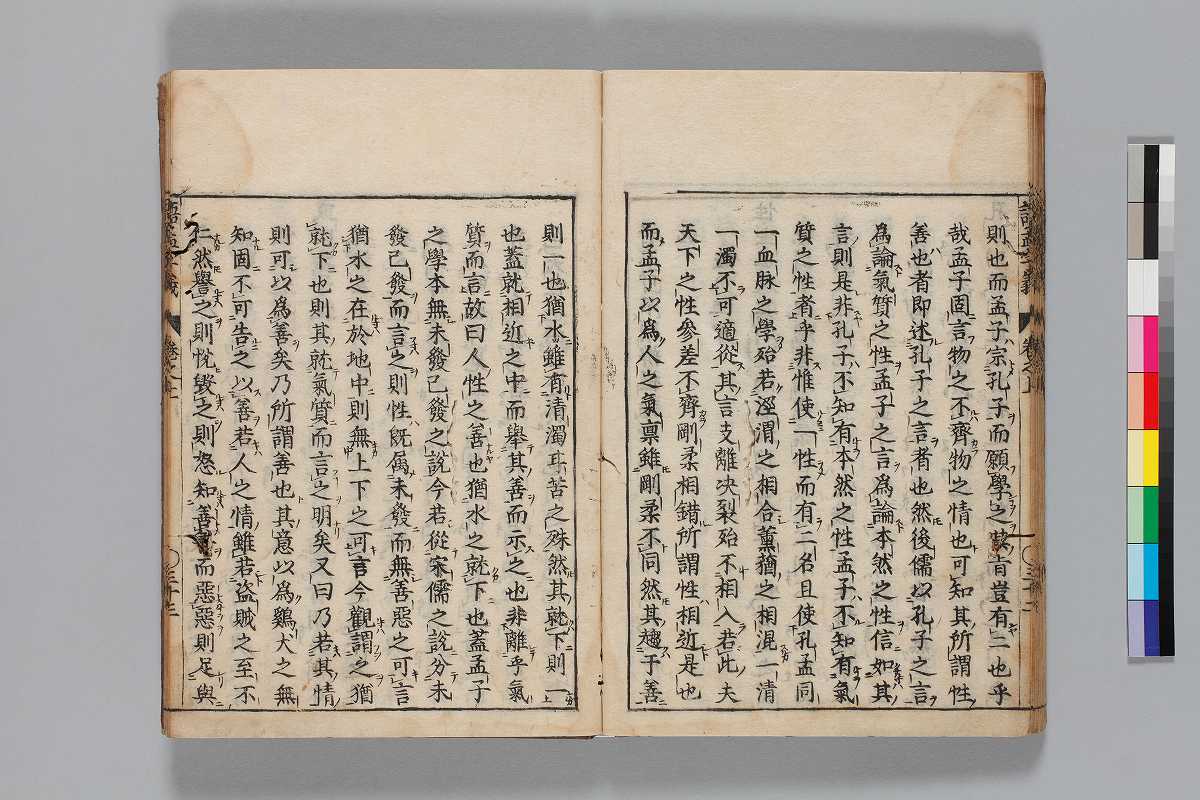 則也而孟子宗孔子而願學之其旨豈有二也乎
哉孟子固言物之不齊物之情也可知其所謂性
善也者即述孔子之言者也然後儒以孔子之言
為論氣質之性孟子之言為論本然之性信如其
言則是非孔子不知有本然之性孟子不知有氣
質之性者乎非惟使一性而有二名且使孔孟同
一血脉之學殆若涇渭之相合薰蕕之相混一清
一濁不可適從其言支離决裂殆不相入若此夫
天下之性參差不齊剛柔相錯所謂性相近是也
而孟子以為人之氣稟雖剛柔不同然其趨于善
則一也猶水雖有清濁甘苦之殊然其就下則一
也蓋就相近之中而舉其善而示之也非離乎氣
質而言故曰人性之善也猶水之就下也蓋孟子
之學本無未發已發之說今若從宋儒之說分未
發已發而言之則性既属未發而無善惡之可言
猶水之在於地中則無上下之可言今觀謂之猶
就下也則其就氣質而言之明矣又曰乃若其情
則可以為善矣乃所謂善也其意以為鷄犬之無
知固不可告之以善若人之情雖若盗賊之至不
仁然譽之則悅毀之則怒知善善而惡惡則足與
語孟字義
卷之上
〇三十二
〇三十三